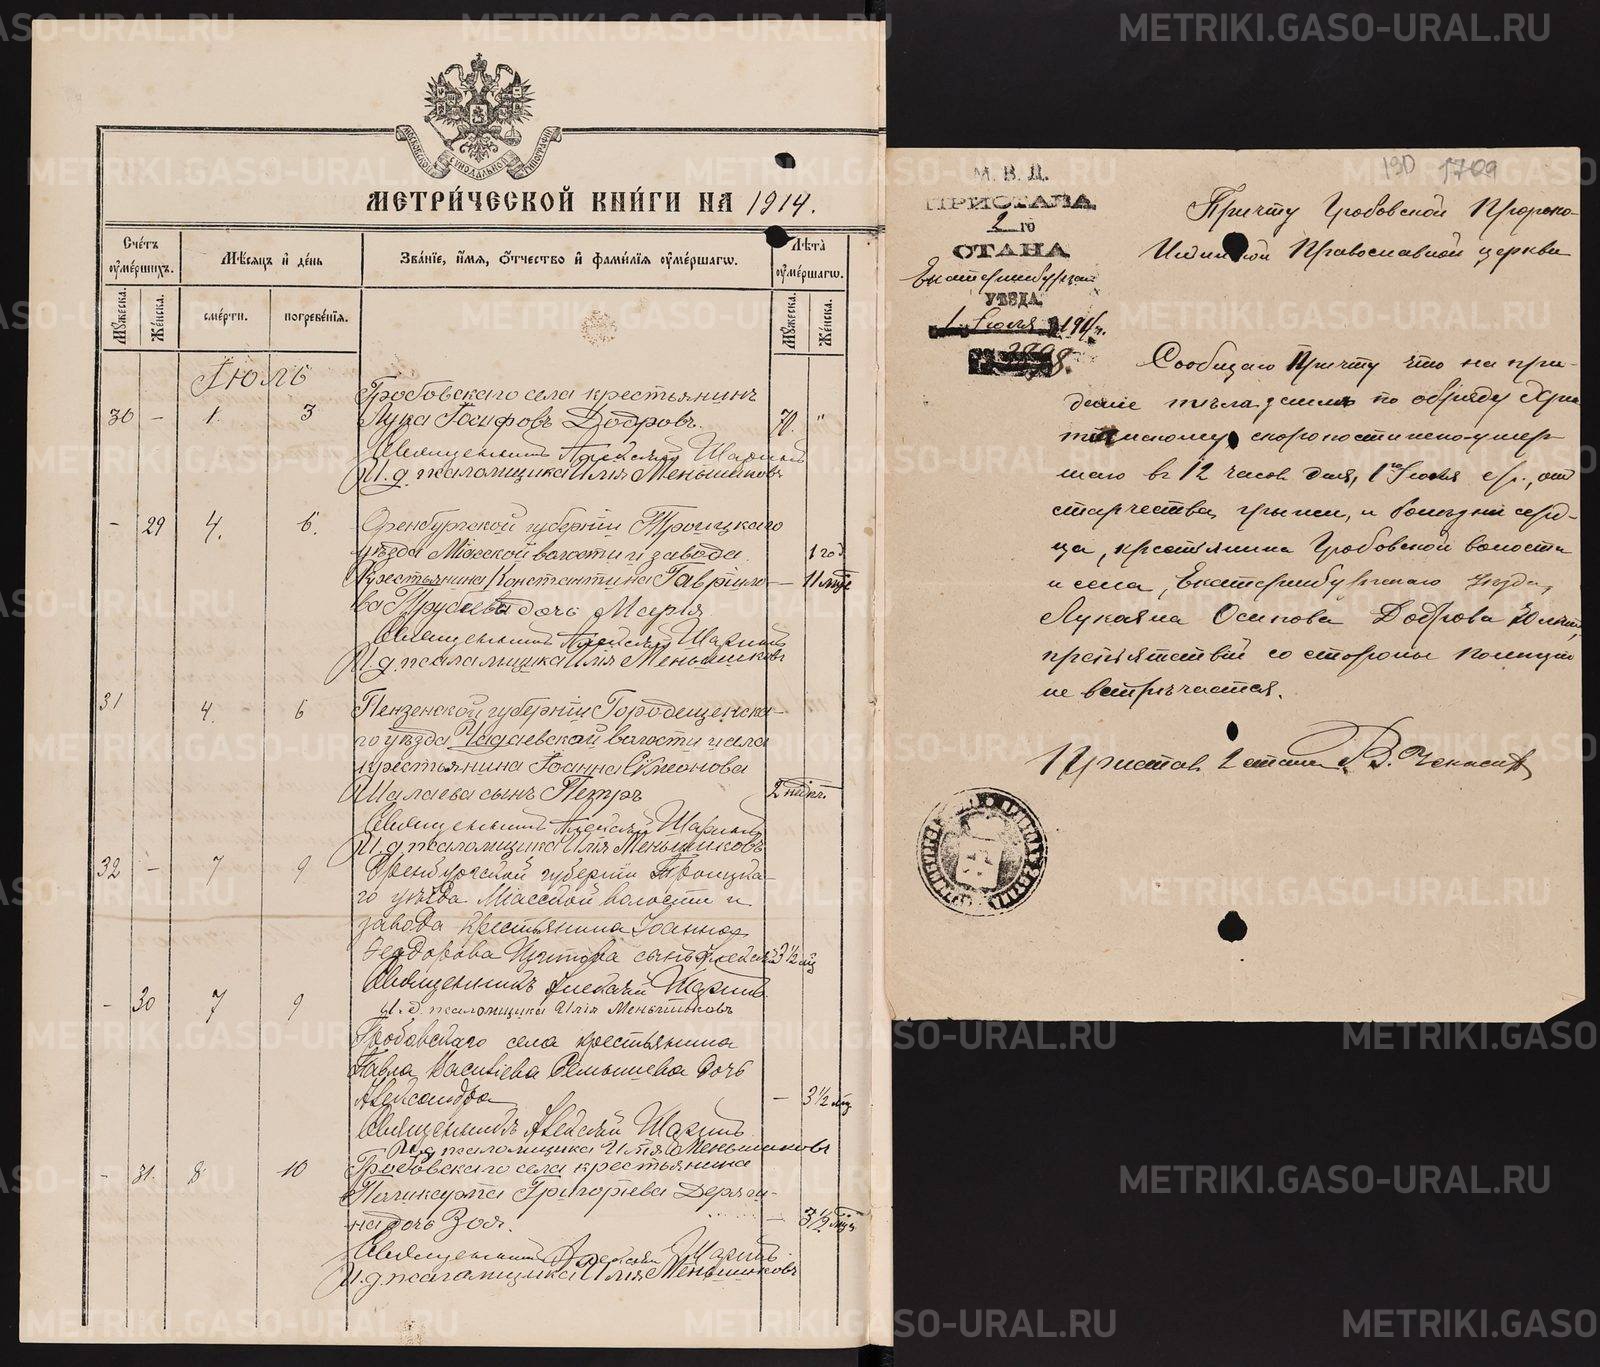 МЕТРИ́ЧЕСКОЙ КНИ́ГИ НА 1914.
Сче́тъ оу҆ме́ршихъ.
Мѣ́сяцъ и҆ де́нь
Зва́нїе, и҆́мѧ, ѻ҆́тчество и҆ фами́лїѧ оу҆ме́ршагѡ.
Лѣ́та оу҆ме́ршагѡ.
Мꙋ́жеска.
Же́нска.
сме́рти.
погребе́нїѧ.
Мꙋ́жеска.
Же́нска.
Іюль
Гробовскаго села крестьянинъ
30 - 1. 3 Лука Іосифовъ Добровъ. 70. "
Священникъ Алексѣй Шаринъ
И. д. псаломщика Илія Меньшиковъ
- 29 4. 6. Оренбургской губерніи Троицкаго
уѣзда Міасской волости и завода 1 год
крестьянина Константина Гаврило- - 11 мѣс
ва Трубѣева дочь Марія
Священникъ Алексѣй Шаринъ
И. д. псаломщика Илія Меньшиковъ
31 4. 6 Пензенской губерніи Городещенска-
го уѣзда Чадаевской волости и села
крестьянина Іоанна Симеонова
Шалаева сынъ Петръ 2 недѣл.
Священникъ Алексѣй Шаринъ
И. д. псаломщика Илія Меньшиковъ
32 - 7 9 Оренбургской губерніи Троицка-
го уѣзда Міасской волости и
завода крестьянина Іоанна
Ѳеодорова сынъ Алексѣй 3 ½ мѣс
Священникъ Алексѣй Шаринъ
- 30 7 9 И. д. псаломщика Илія Меньшиковъ
Гробовскаго села крестьянина
Павла Васильева дочь
Александра - 3 ½ мѣс
Священникъ Алексѣй Шаринъ
И. д. псаломщика Илія Меньшиковъ
- 31. 8 10 Гробовскаго села крестьянина
Поликарпа Григорьева Держи-
на дочь Зоя. - 3 ½ мѣс
Священникъ Алексѣй Шаринъ
И. д. псаломщика Илія Меньшиковъ
190 1709
М. В. Д.
ПРИСТАВА
2 го
СТАНА
Екатеринбургскаго
УѢЗДА
1 Іюля 1914 г.
Причту Гробовской Пророко-
Ильинской Православной церкви
Сообщаю Причту что на пре-
даніе тѣла землѣ по обряду Хри
стіанскому скоропостижно умер-
шаго въ 12 часов дня, 1го Іюля с/г., от
старчества, грыжи, и болезни серд-
ца, крестьянина Гробовской волости
и села, Екатеринбургскаго уѣзда,
Лукаяна Осипова Доброва 70 лѣт,
препятствій со стороны полиціи
не встрѣчается.
Пристав 2 стана
METRIKI.GASO-URAL.RU